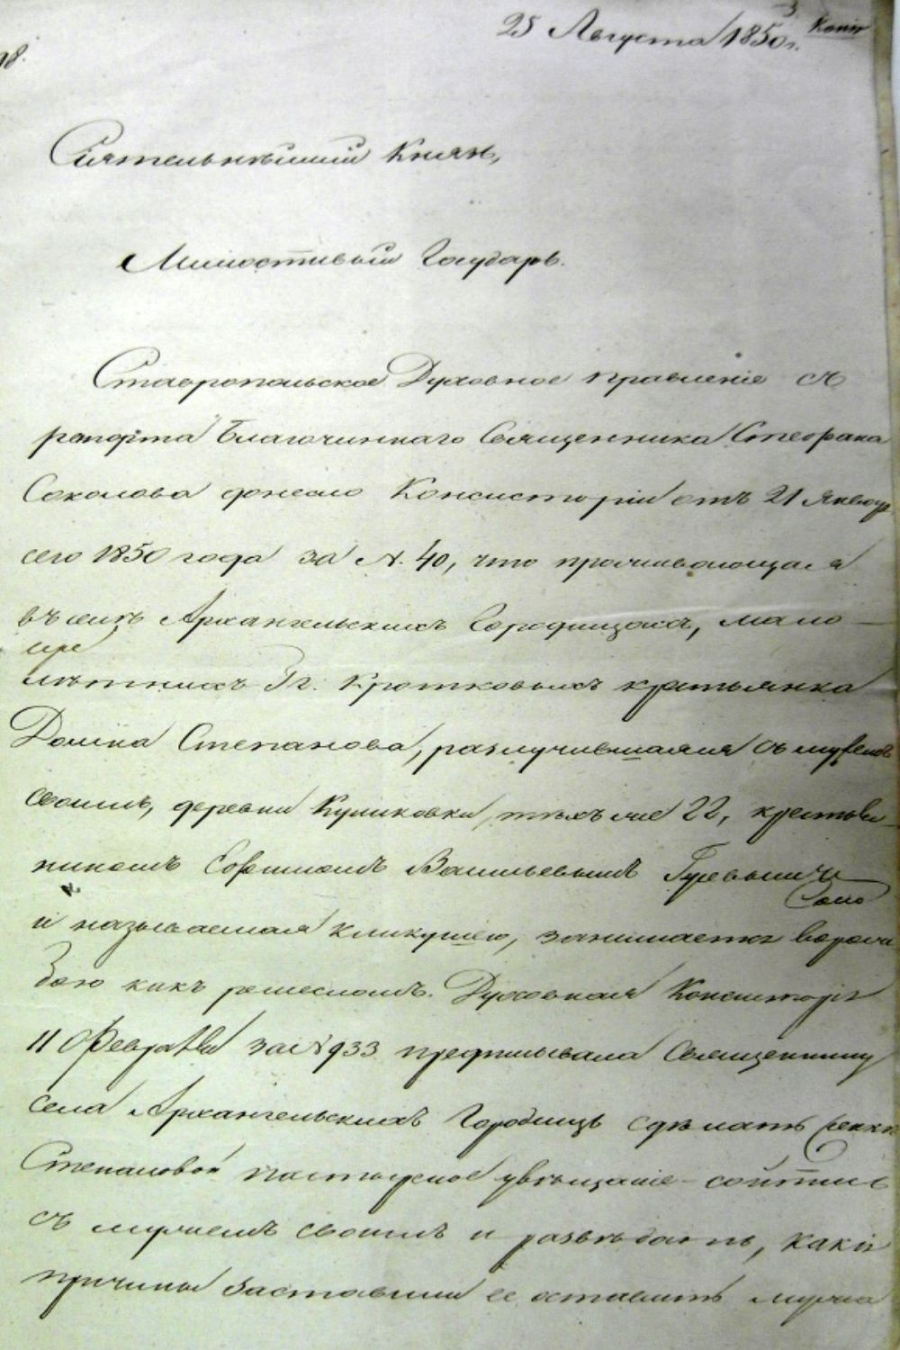 25 Августа 1850 г. Копія
98.
Сіятельнѣйшій Князь,
Милостивый Государь.
Ставропольское Духовное Правленіе съ
рапорта Благочиннаго Священника Стефана
Соколова донесло Консисторіи отъ 21 Января
сего 1850 года за N. 40, что проживающая
въ селѣ Архангельскихъ Городищахъ, мало-
лѣтнихъ Гг. Кротковыхъ крестьянка
Степанова, разлучившаяся съ мужемъ
своимъ, деревни Куликовки, тѣхъ же Гг, крестья-
ниномъ Васильевымъ
и называемая кликушею, занимается ворож-
бою какъ ремесломъ. Духовная Консисторія
11 Февраля за N 933 предписывала Священнику
села Архангельскихъ Городищъ сдѣлать
Степановой пастырское увѣщаніе сойтись
съ мужемъ своимъ и развѣдать, какія
причины заставили ее оставить мужа